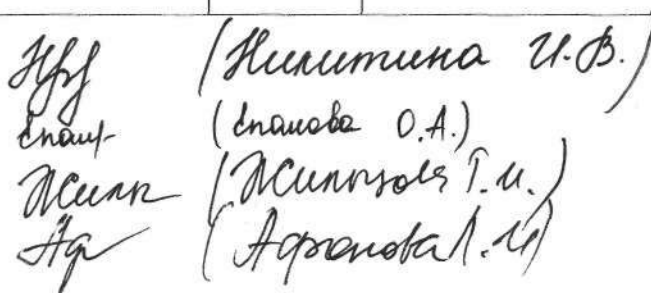 (Никитина И.В.)
Епаш (Епашова О.А.)
Жили (Жильцова Т.И.)
Аф (Афонова Л.И)